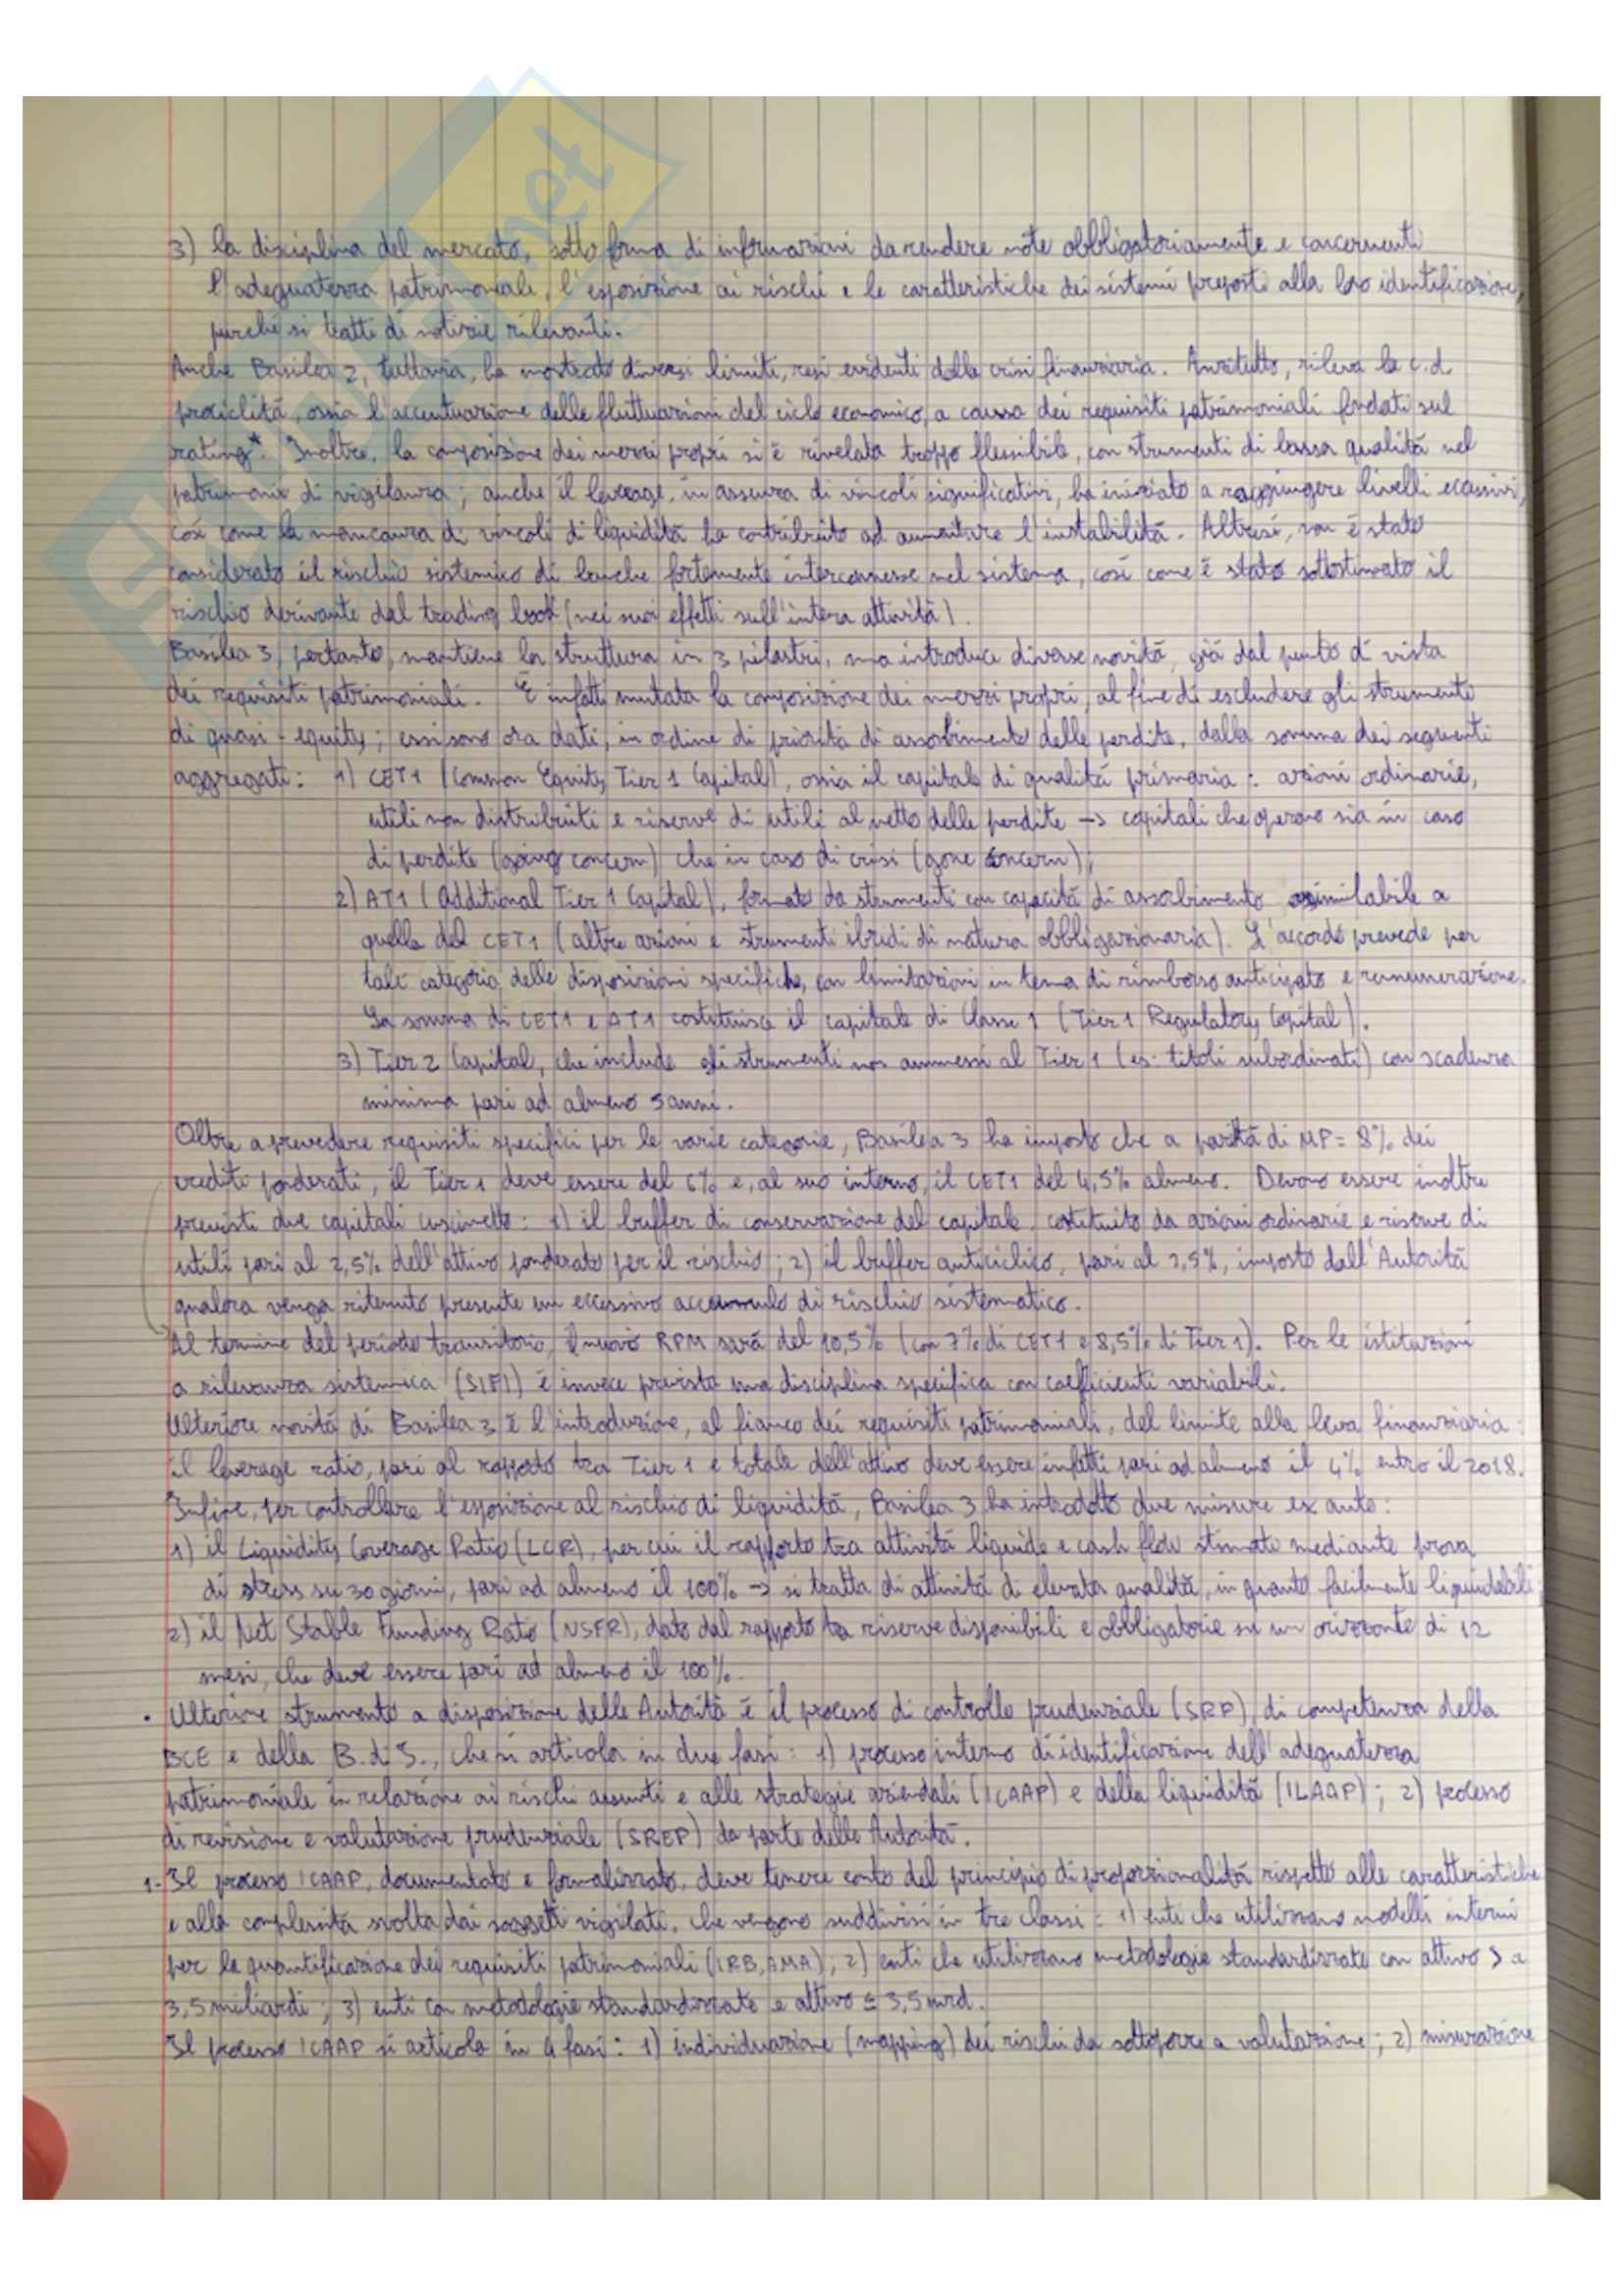 3) la disciplina del mercato, sotto forma di informazioni da rendere note obbligatoriamente e concernenti
l'adeguatezza patrimoniale, l'esposizione ai rischi e le caratteristiche dei sistemi preposti alla loro identificazione,
purché si tratti di notizie rilevanti.
Anche Basilea 2, tuttavia, ha mostrato diversi limiti, resi evidenti dalla crisi finanziaria. Anzitutto, rileva la c.d.
prociclità, ossia l'accentuazione delle fluttuazioni del ciclo economico, a causa dei requisiti patrimoniali fondati sul
rating*. Inoltre, la composizione dei mezzi propri si è rivelata troppo flessibile, con strumenti di bassa qualità nel
patrimonio di vigilanza; anche il leverage, in assenza di vincoli significativi, ha iniziato a raggiungere livelli eccessivi,
così come la mancanza di vincoli di liquidità ha contribuito ad aumentare l'instabilità. Altresì, non è stato
considerato il rischio sistemico di banche fortemente interconnesse nel sistema, così come è stato sottostimato il
rischio derivante dal trading book (nei suoi effetti sull'intera attività).
Basilea 3, pertanto, mantiene la struttura in 3 pilastri, ma introduce diverse novità, già dal punto di vista
dei requisiti patrimoniali. È infatti mutata la composizione dei mezzi propri, al fine di escludere gli strumenti
di quasi-equity; essi sono ora dati, in ordine di priorità di assorbimento delle perdite, dalla somma dei seguenti
aggregati: 1) CET1 (Common Equity Tier 1 Capital), ossia il capitale di qualità primaria: azioni ordinarie,
utili non distribuiti e riserve di utili al netto delle perdite -> capitali che operano sia in caso
di perdite (going concern) che in caso di crisi (gone concern);
2) AT1 (Additional Tier 1 Capital), formato da strumenti con capacità di assorbimento assimilabile a
quella del CET1 (altre azioni e strumenti ibridi di natura obbligazionaria). L'accordo prevede per
tale categoria delle disposizioni specifiche, con limitazioni in tema di rimborso anticipato e remunerazione.
La somma di CET1 e AT1 costituisce il capitale di Classe 1 (Tier 1 Regulatory Capital).
3) Tier 2 Capital, che include gli strumenti non ammessi al Tier 1 (es: titoli subordinati) con scadenza
minima pari ad almeno 5 anni.
Oltre a prevedere requisiti specifici per le varie categorie, Basilea 3 ha imposto che a parità di MP = 8% dei
crediti ponderati, il Tier 1 deve essere del 6% e, al suo interno, il CET1 del 4,5% almeno. Devono essere inoltre
previsti due capitali cuscinetto: 1) il buffer di conservazione del capitale, costituito da azioni ordinarie e riserve di
utili pari al 2,5% dell'attivo ponderato per il rischio; 2) il buffer anticiclico, pari al 2,5%, imposto dall'Autorità
qualora venga ritenuto presente un eccessivo accumulo di rischio sistematico.
Al termine del periodo transitorio, il nuovo RPM sarà del 10,5% (con 7% di CET1 e 8,5% di Tier 1). Per le istituzioni
a rilevanza sistemica (SIFI) è invece prevista una disciplina specifica con coefficienti variabili.
Ulteriore novità di Basilea 3 è l'introduzione, al fianco dei requisiti patrimoniali, del limite alla leva finanziaria:
il leverage ratio, pari al rapporto tra Tier 1 e totale dell'attivo deve essere infatti pari ad almeno il 4% entro il 2018.
Infine, per controllare l'esposizione al rischio di liquidità, Basilea 3 ha introdotto due misure ex ante:
1) il Liquidity Coverage Ratio (LCR), per cui il rapporto tra attività liquide e cash flow stimato mediante prova
di stress su 30 giorni, pari ad almeno il 100% -> si tratta di attività di elevata qualità, in quanto facilmente liquidabili;
2) il Net Stable Funding Ratio (NSFR), dato dal rapporto tra riserve disponibili e obbligatorie su un orizzonte di 12
mesi, che deve essere pari ad almeno il 100%.
• Ulteriore strumento a disposizione delle Autorità è il processo di controllo prudenziale (SRP), di competenza della
BCE e della B.d'I., che si articola in due fasi: 1) processo interno di identificazione dell'adeguatezza
patrimoniale in relazione ai rischi assunti e alle strategie aziendali (ICAAP) e della liquidità (ILAAP); 2) processo
di revisione e valutazione prudenziale (SREP) da parte delle Autorità.
1- Il processo ICAAP, documentato e formalizzato, deve tenere conto del principio di proporzionalità rispetto alle caratteristiche
e alla complessità svolta dai soggetti vigilati, che vengono suddivisi in tre classi: 1) enti che utilizzano modelli interni
per la quantificazione dei requisiti patrimoniali (IRB, AMA); 2) enti che utilizzano metodologie standardizzate con attivo > a
3,5 miliardi; 3) enti con metodologie standardizzate e attivo ≤ 3,5 mrd.
Il processo ICAAP si articola in 4 fasi: 1) individuazione (mapping) dei rischi da sottoporre a valutazione; 2) misurazione